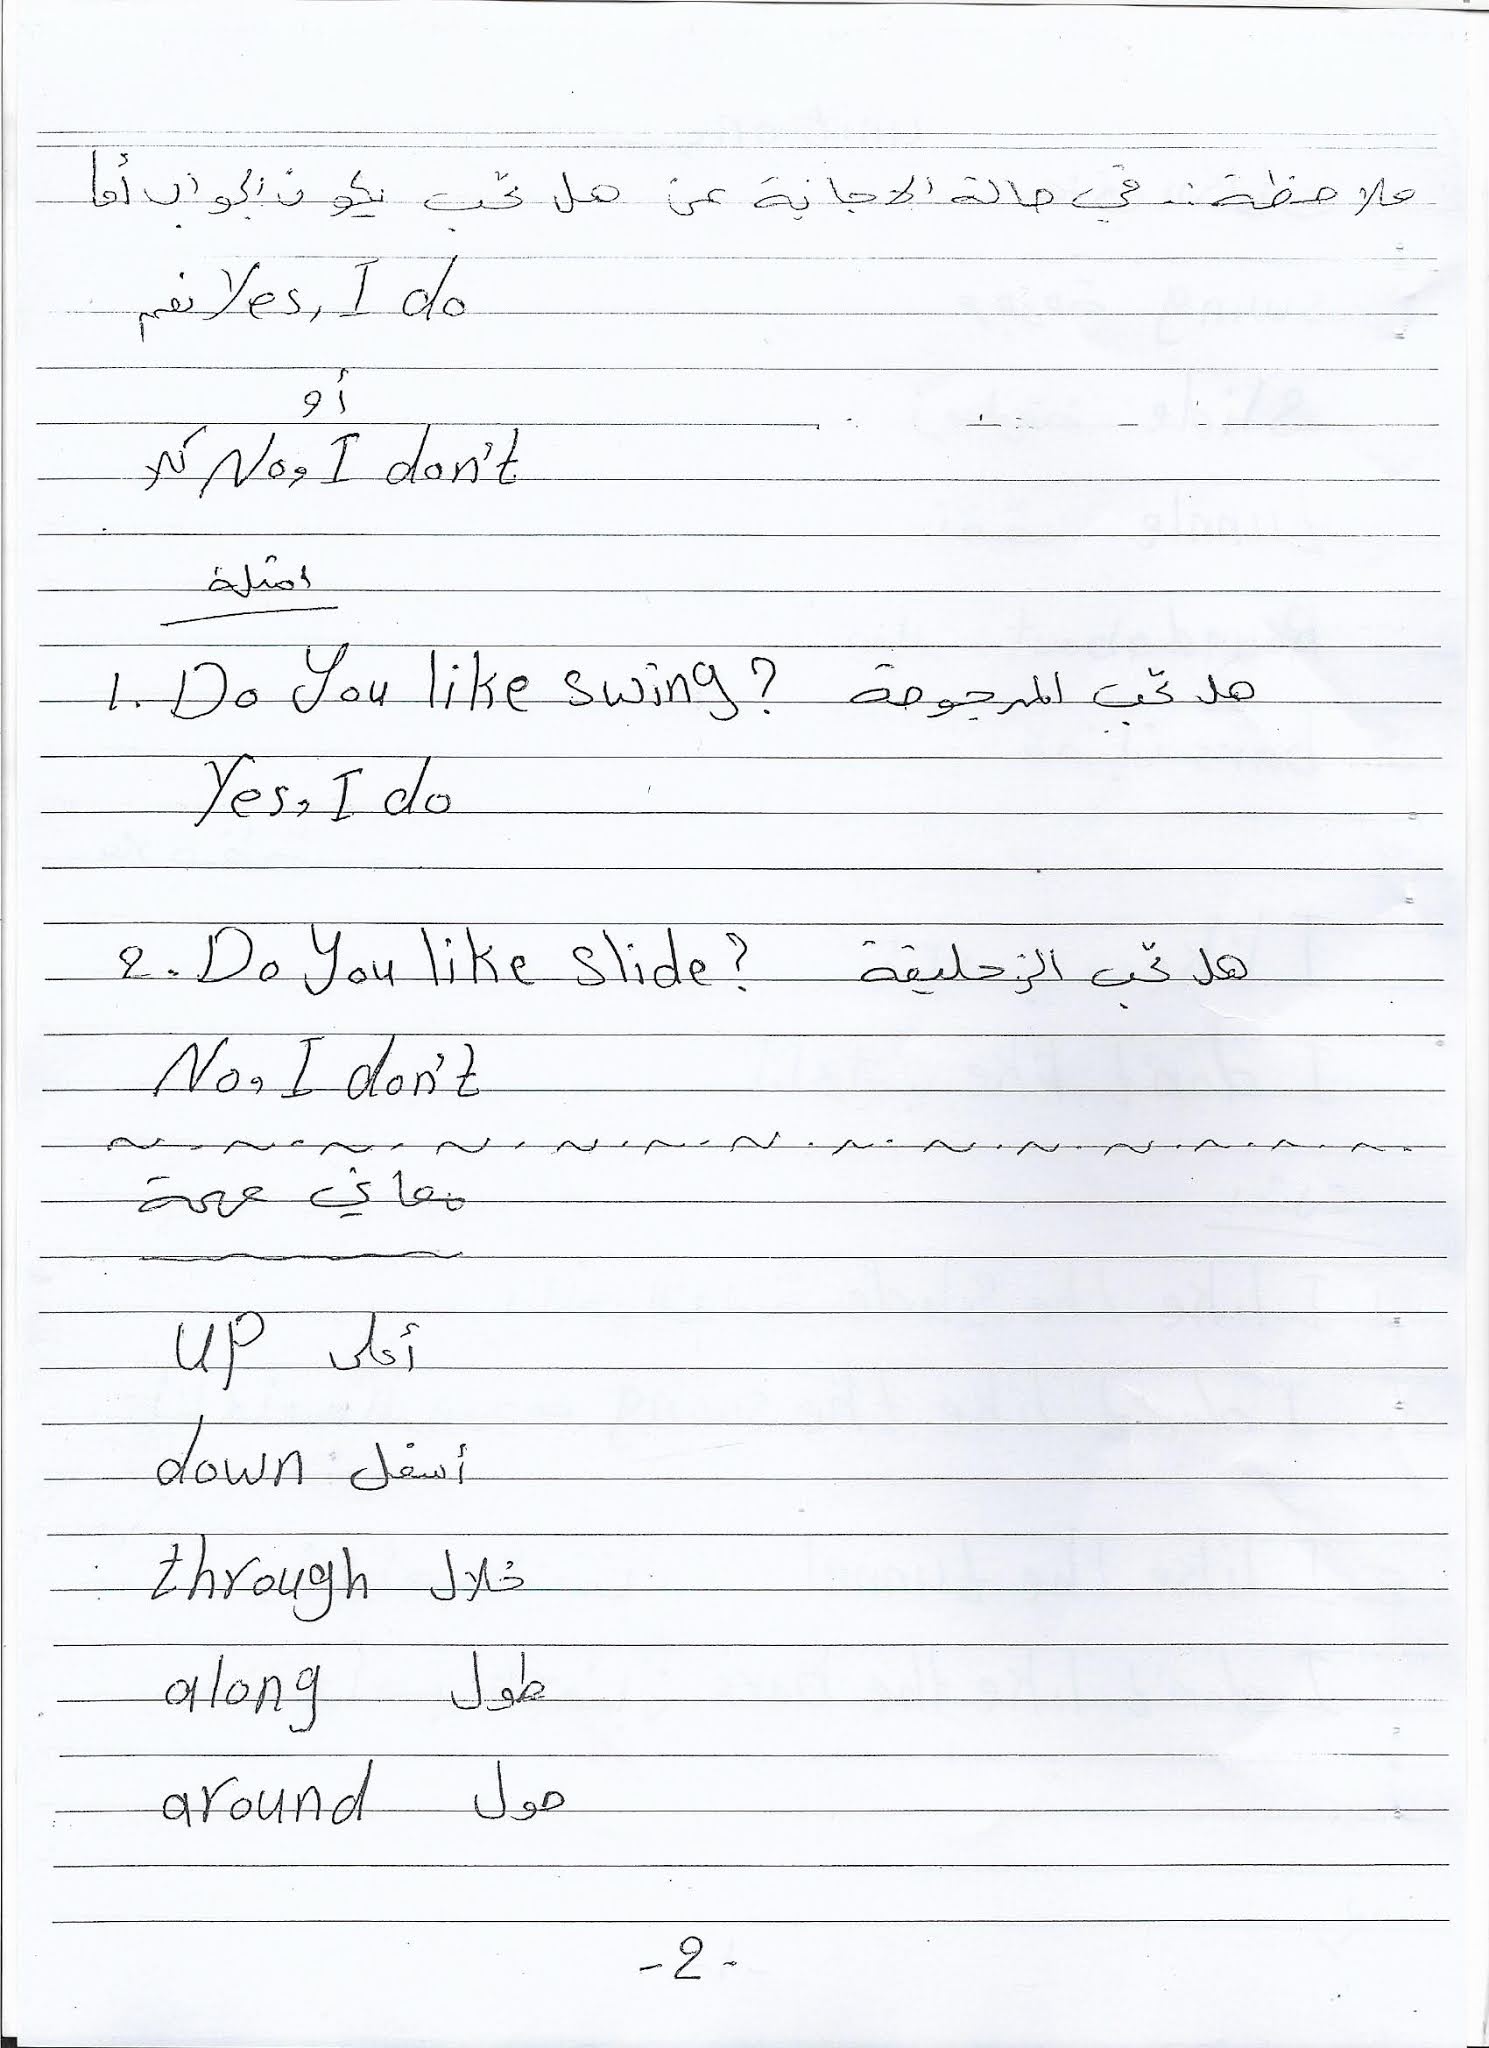 ملاحظة :. في حالة الاجابة عن هل تحب يكون الجواب أما
نعم Yes, I do
أو
كلا No, I don't
امثلة
1. Do You like swing? هل تحب المرجوحة
Yes, I do
2. Do You like slide? هل تحب الزحليقة
No, I don't
معاني مهمة
UP أعلى
down أسفل
through خلال
along طول
around حول
-2-